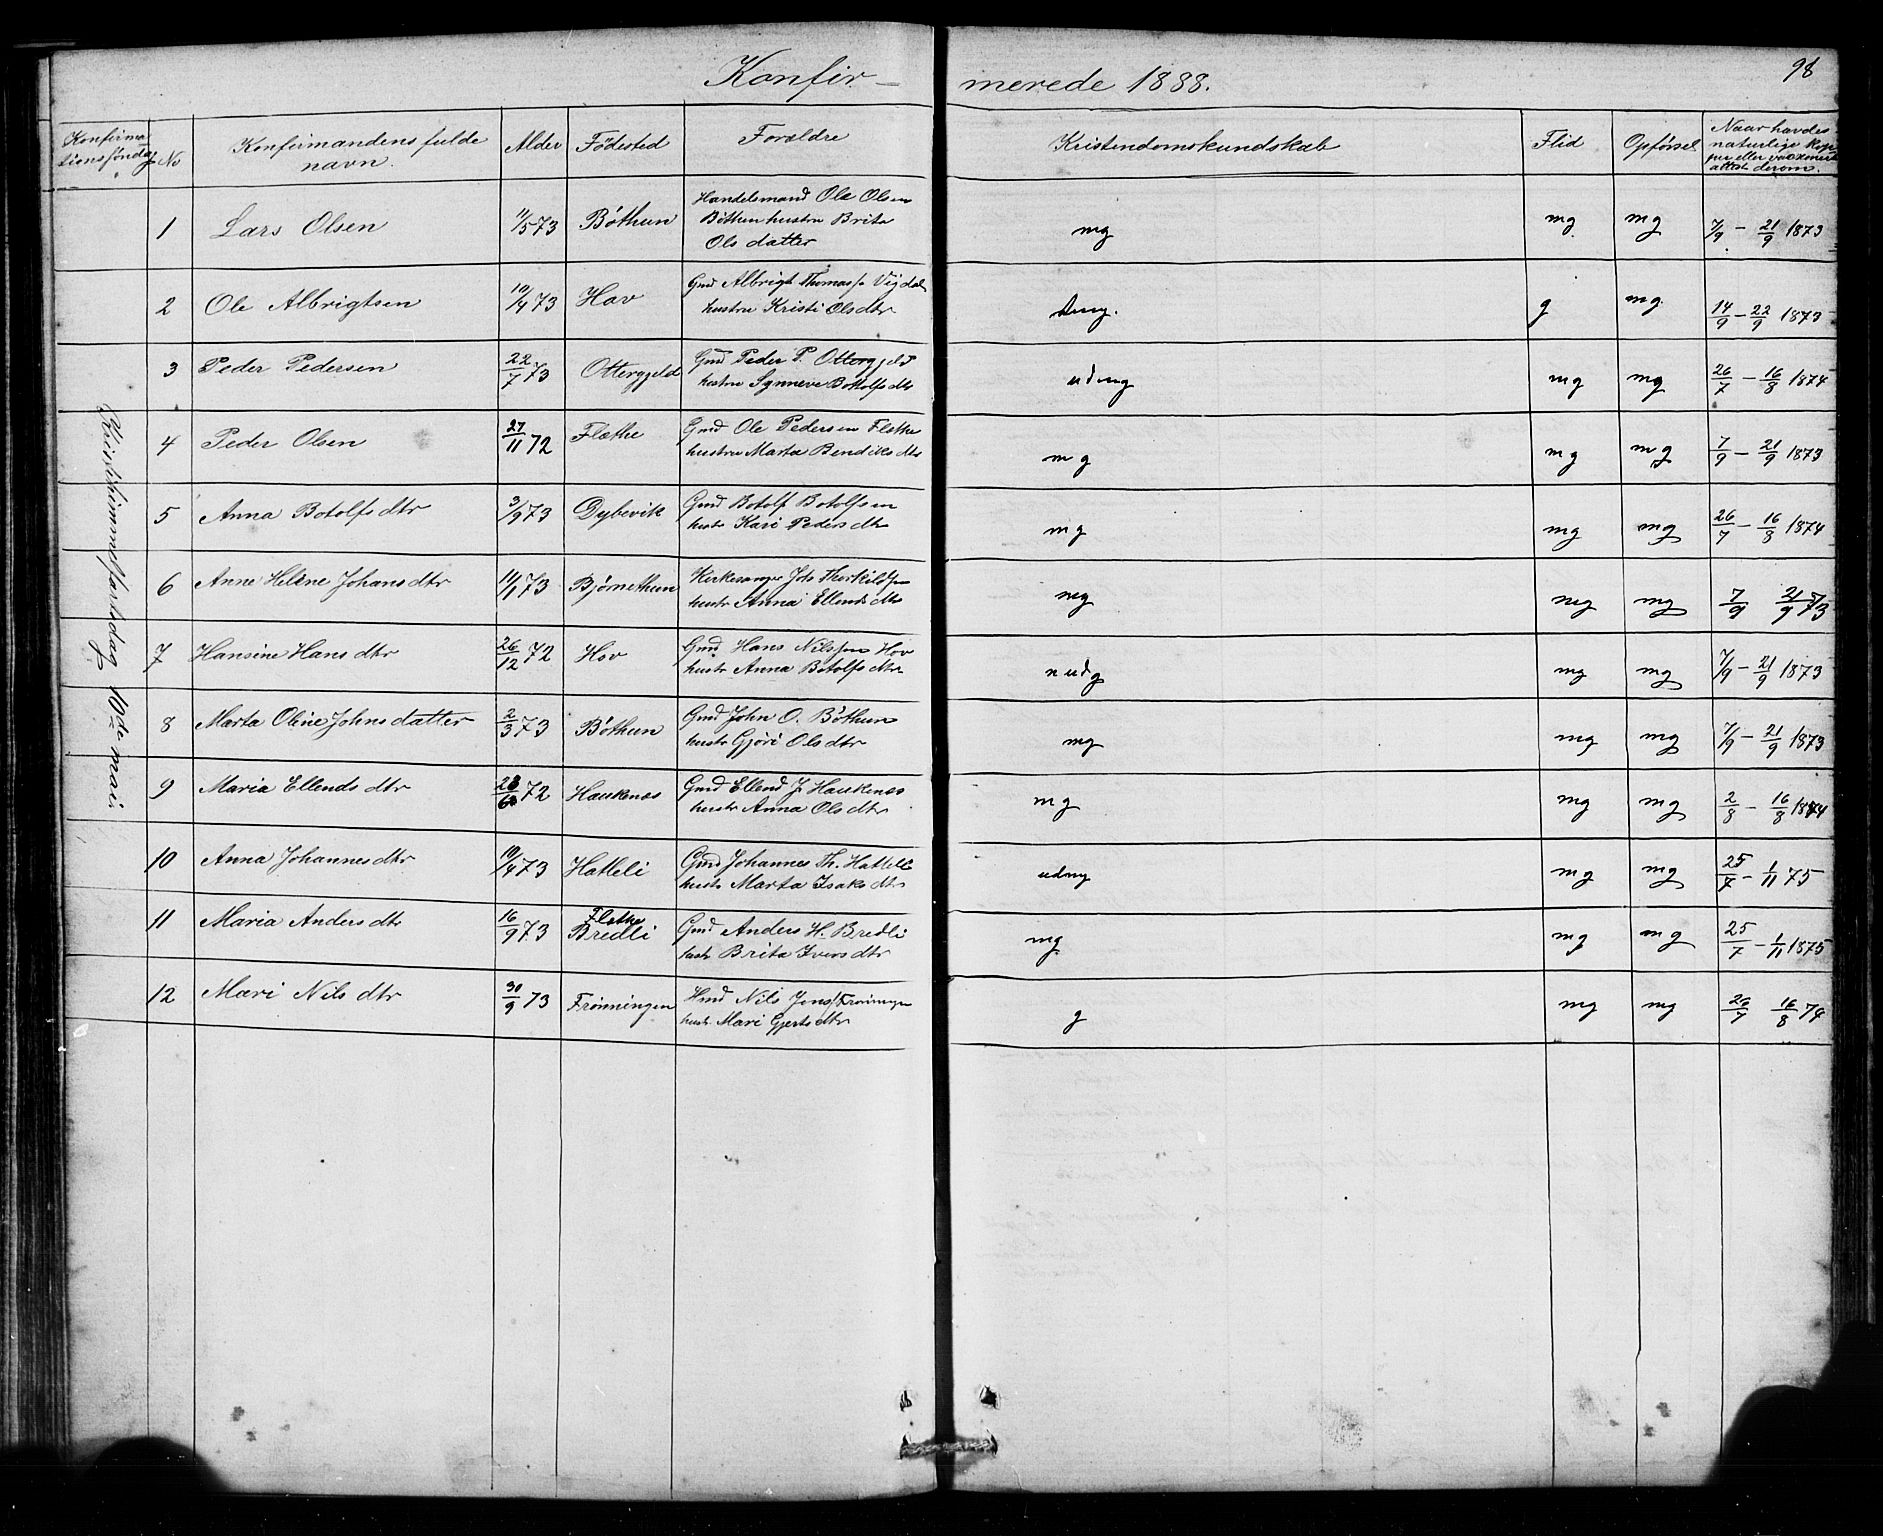 98
Konfir- merede 1888.
Konfirma
tionssøndag No Konfirmandens fulde
navn. Alder Fødested Forældre Kristendomskundskab Flid Opførsel Naar havdes
naturlige kop-
per eller vaccineret
attest derom.
Kristihimmelfartsdag 10de mai
1 Lars Olsen 11/5 73 Bøthun Handelsmand Ole Olsen
Bøthun hustru Brita
Ols datter mg mg mg 7/9 - 21/9 1873
2 Ole Albrigtsen 10/4 73 Hov Gmd Albrigt Thomass. Vigdal
hustru Kristi Olsdtr g mg 14/9 - 22/9 1873
3 Peder Pedersen 22/7 73 Ottergjeld Gmd Peder P. Ottergjeld
hustru Synneve Botolfsdtr udmg mg mg 26/7 - 16/8 1874
4 Peder Olsen 27/11 72 Flæthe Gmd Ole Pedersen Flæthe
hustru Marta Bendiksdtr mg mg mg 7/9 - 21/9 1873
5 Anna Botolfsdtr 3/9 73 Dybevik Gmd Botolf Botolfsen
hustr Kari Pedersdtr mg mg mg 26/7 - 16/8 1874
6 Anne Heline Johansdtr 14/1 73 Bjørnethun Kirkesanger Johs Thorkilds.
hustr Anna Ellendsdtr mg mg mg 7/9 21/9 73
7 Hansine Hansdtr 26/12 72 Hov Gmd Hans Nilssen Hov
hustr Anna Botolfsdtr nudg mg mg 7/9 - 21/9 1873
8 Marta Oline Johnsdatter 2/3 73 Bøthun Gmd John O. Bøthun
hustr Gjøri Olsdtr mg mg mg 7/9 - 21/9 1873
9 Maria Ellendsdtr 72 Haukenæs Gmd Ellend J. Haukenæs
hustr Anna Olsdtr mg mg mg 2/8 - 16/8 1874
10 Anna Johannesdtr 10/4 73 Hatleli Gmd Johannes Th. Hatleli
hustr Marta Isaksdtr udmg mg mg 25/7 - 1/11 75
11 Maria Andersdtr 16/9 73 Flæthe
Bredli Gmd Anders H. Bredli
hustr Brita Iversdtr mg mg mg 25/7 - 1/11 1875
12 Mari Nilsdtr 30/9 73 Frønningen Hmd Nils Jens. Frønningen
hustr Mari Gjertsdtr g mg mg 26/7 16/8 74